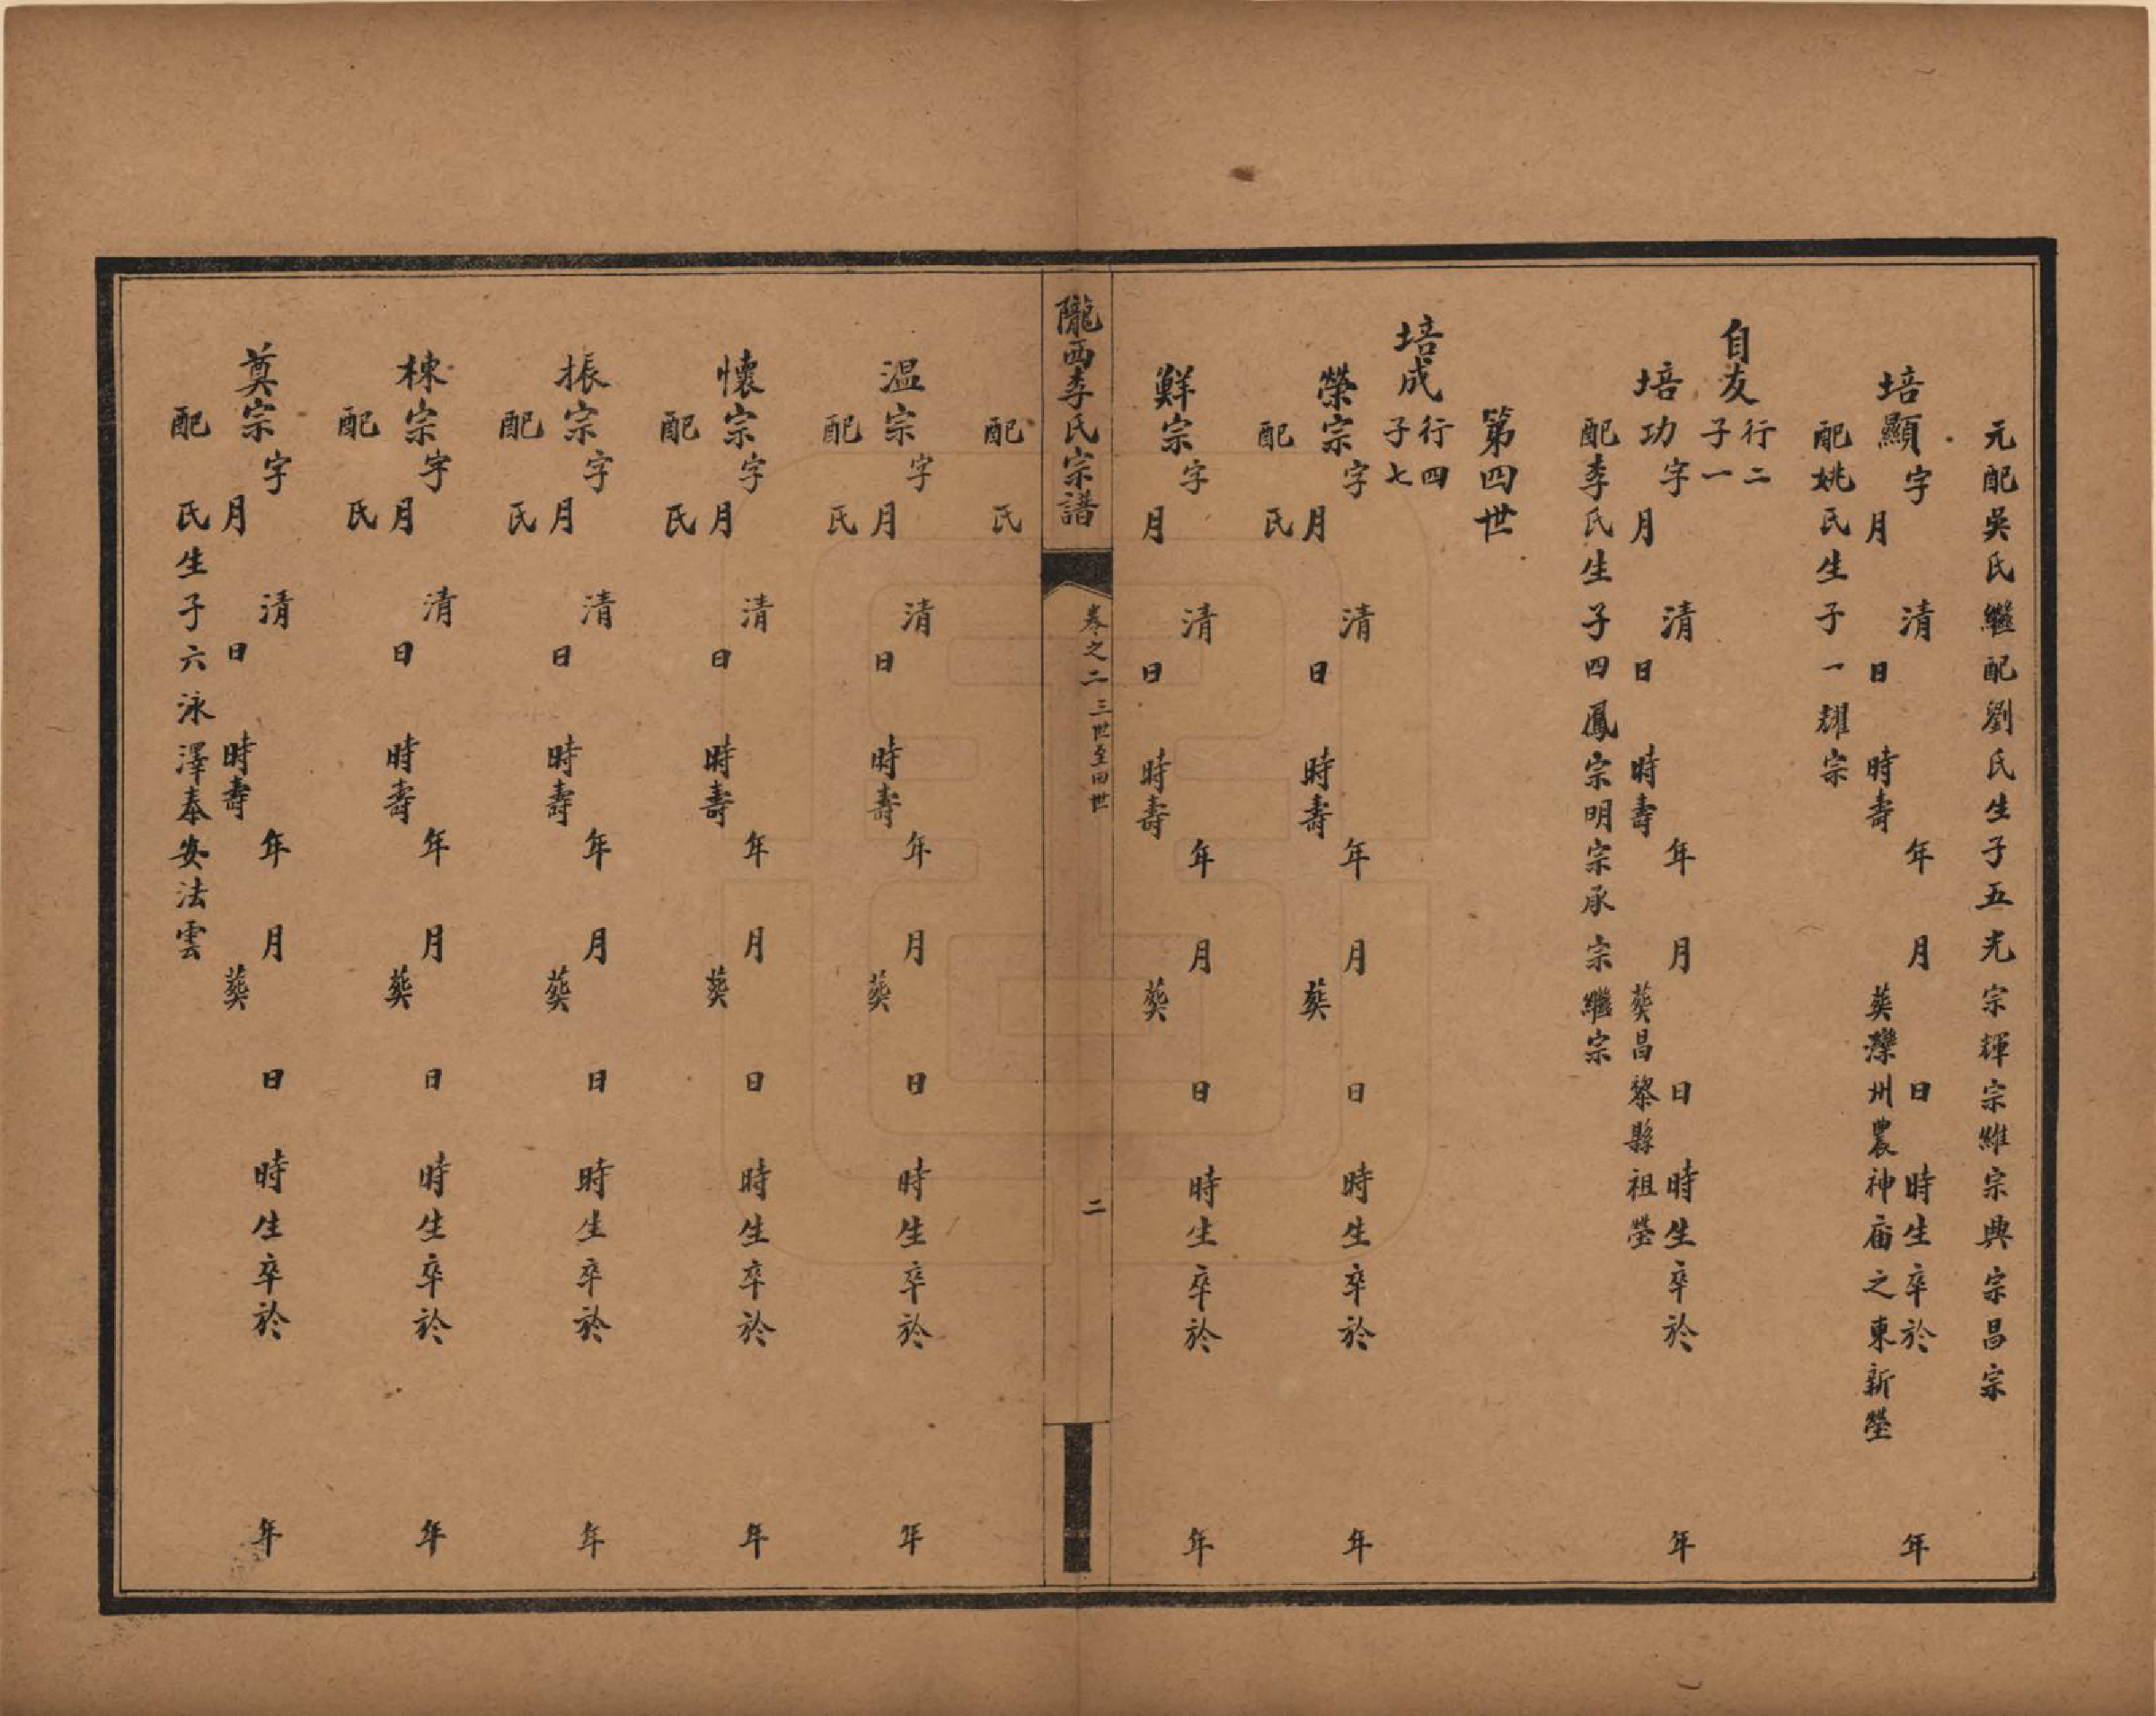 元配吳氏繼配劉氏生子五光宗輝宗維宗典宗昌宗
培顯字 清 年 月 日 時生卒於 年
月 日 時壽 葬灤州農神廟之東新塋
配姚氏生子一耀宗
自友 行二 子一
培功字 清 年 月 日 時生卒於 年
月 日 時壽 葬昌黎縣祖塋
配李氏生子四鳳宗明宗承宗繼宗
第四世
培成 行四 子七
榮宗字 清 年 月 日 時生卒於 年
月 日 時壽 葬
配 氏
鮮宗字 清 年 月 日 時生卒於 年
月 日 時壽 葬
隴西李氏宗譜 卷之二 三世至四世 二
配 氏
温宗字 清 年 月 日 時生卒於 年
月 日 時壽 葬
配 氏
懷宗字 清 年 月 日 時生卒於 年
月 日 時壽 葬
配 氏
振宗字 清 年 月 日 時生卒於 年
月 日 時壽 葬
配 氏
棟宗字 清 年 月 日 時生卒於 年
月 日 時壽 葬
配 氏
奠宗字 清 年 月 日 時生卒於 年
月 日 時壽 葬
配 氏生子六泳澤奉安法雲